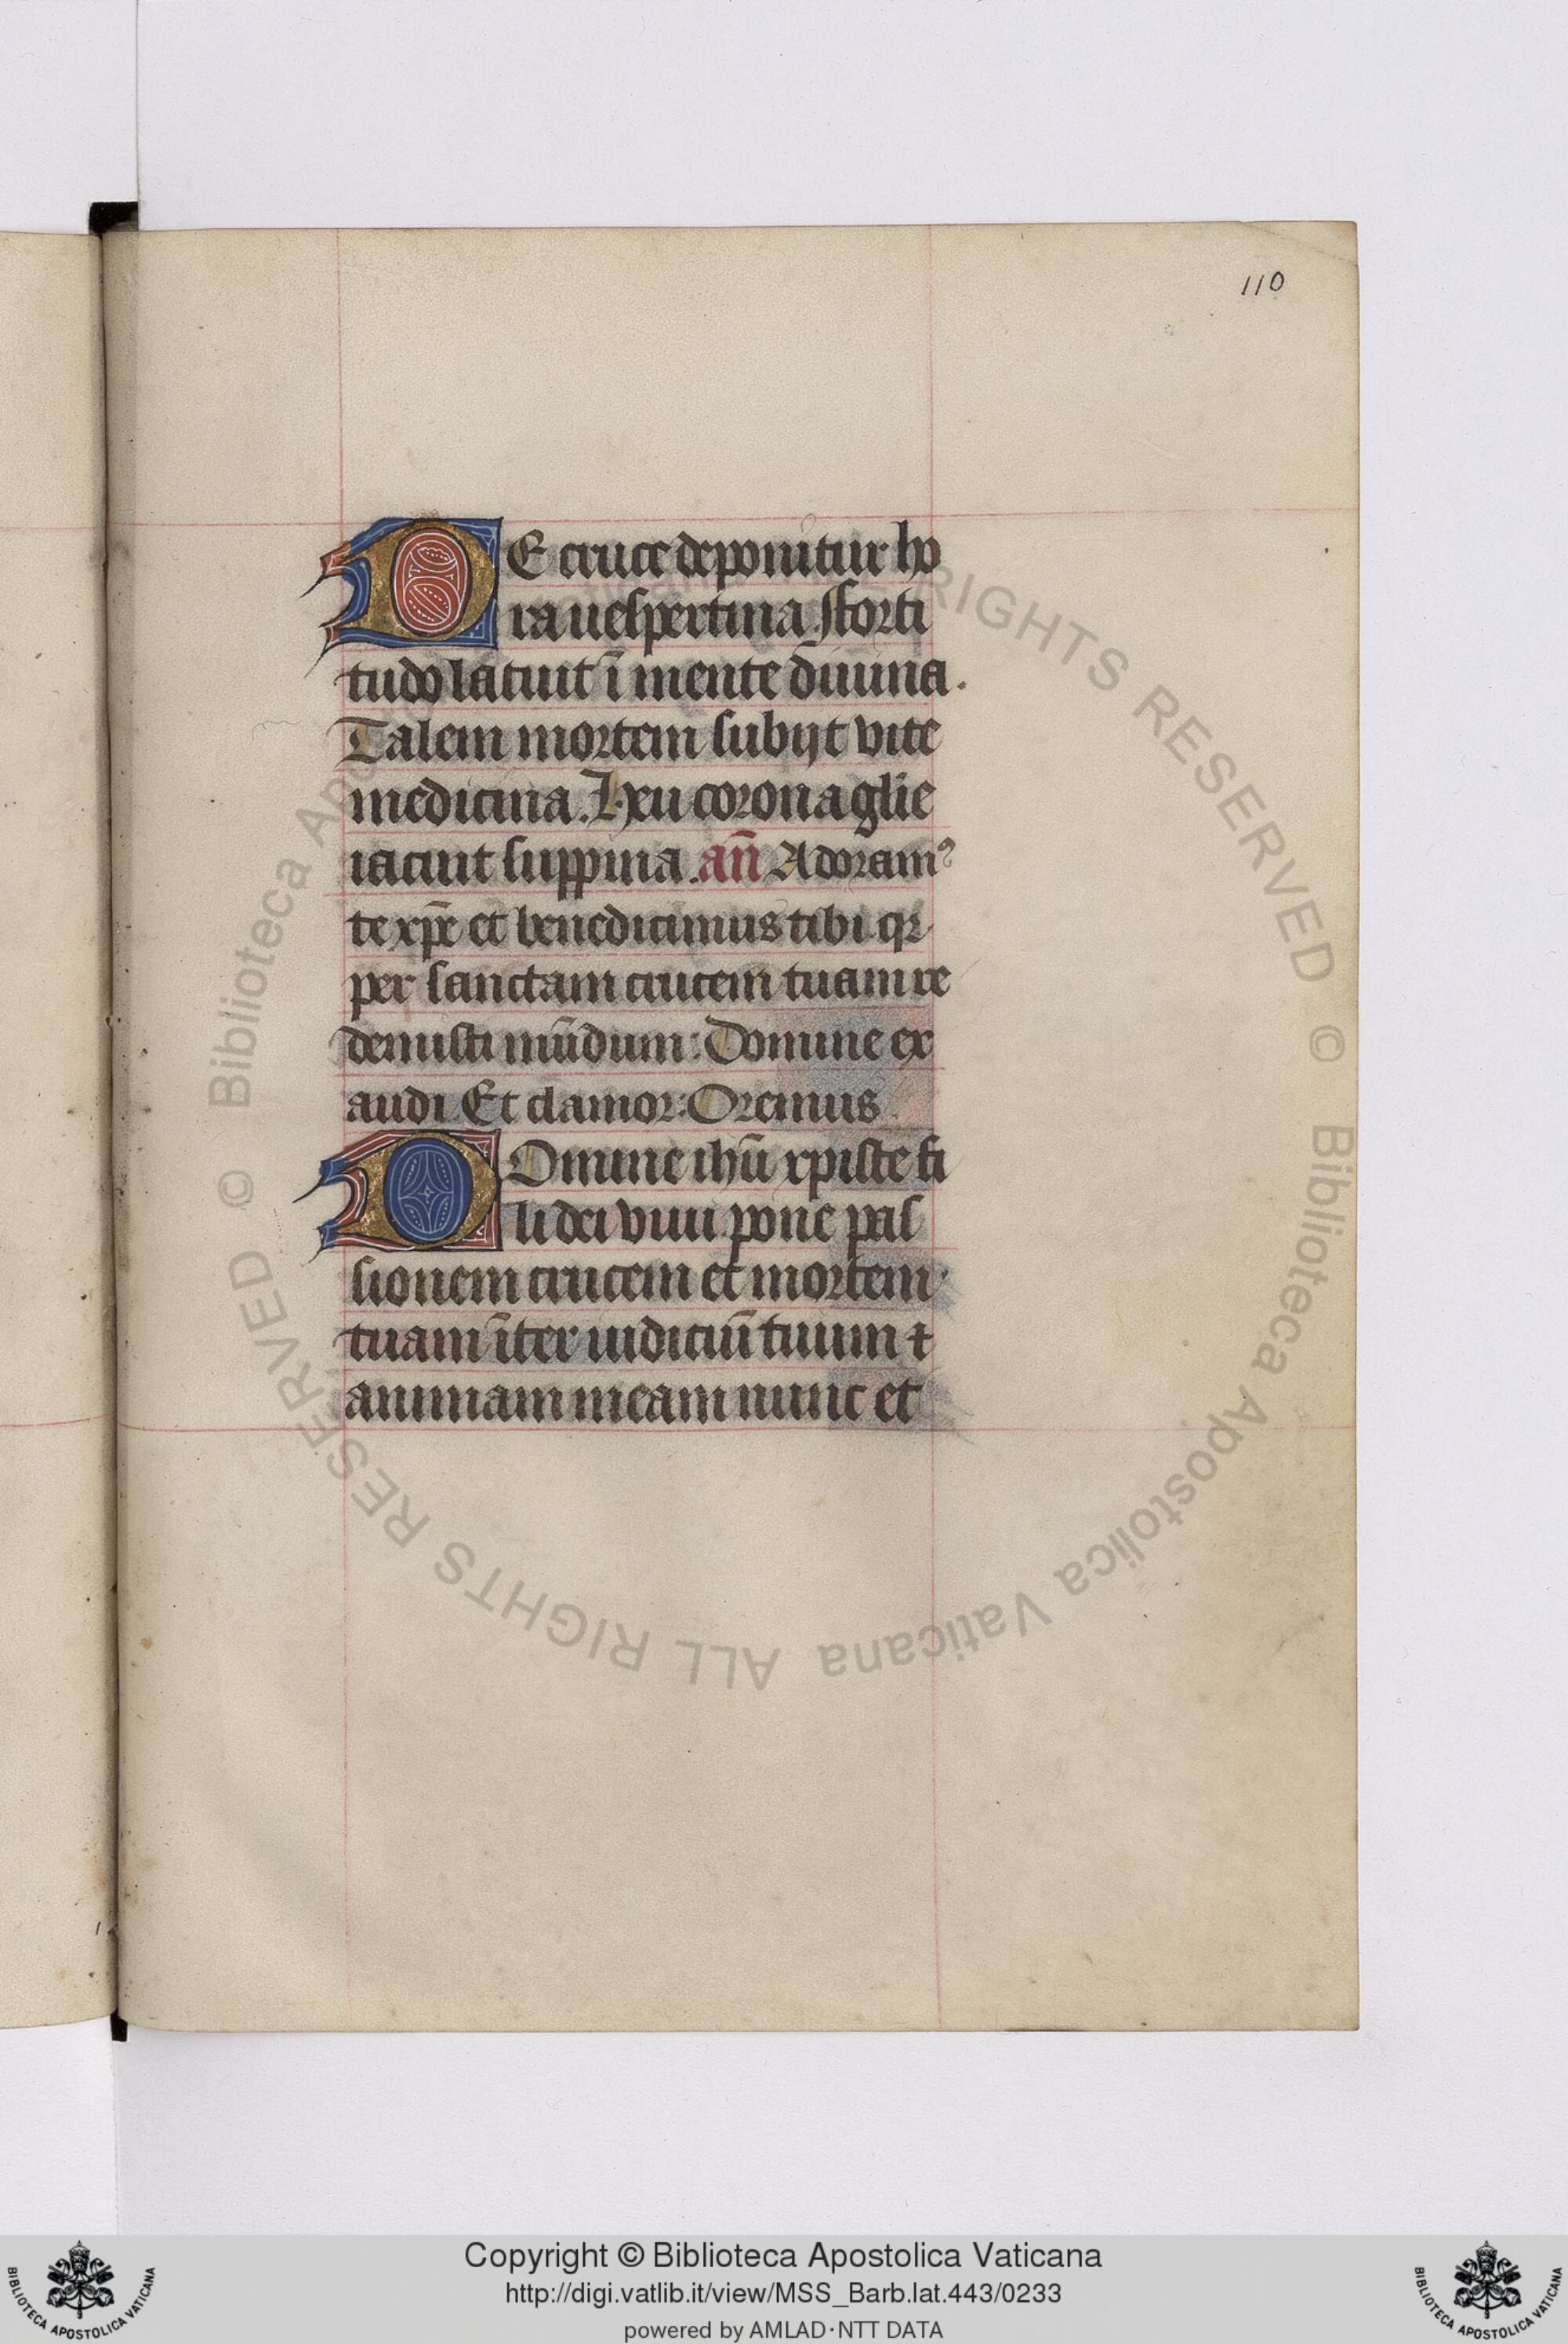 110
DE cruce deponitur ho
ra uespertina. Forti
tudo latuit ī mente diuina.
Talem mortem subijt vite
medicina. Heu corona glie
iacuit suppina. an̄ Adoramꝰ
te xp̄e et benedicimus tibi qr
per sanctam crucem tuam re
demisti mūdum: Domine ex
audi. Et clamor: Oremus.
DOmine ihū xpiste fi
li dei viui pone pas
sionem crucem et mortem
tuam īter iudiciū tuum ⁊
animam meam nunc et
© Biblioteca Apostolica Vaticana ALL RIGHTS RESERVED
© Biblioteca Apostolica Vaticana ALL RIGHTS RESERVED
BIBLIOTECA APOSTOLICA VATICANA
Copyright © Biblioteca Apostolica Vaticana
http://digi.vatlib.it/view/MSS_Barb.lat.443/0233
powered by AMLAD·NTT DATA
BIBLIOTECA APOSTOLICA VATICANA